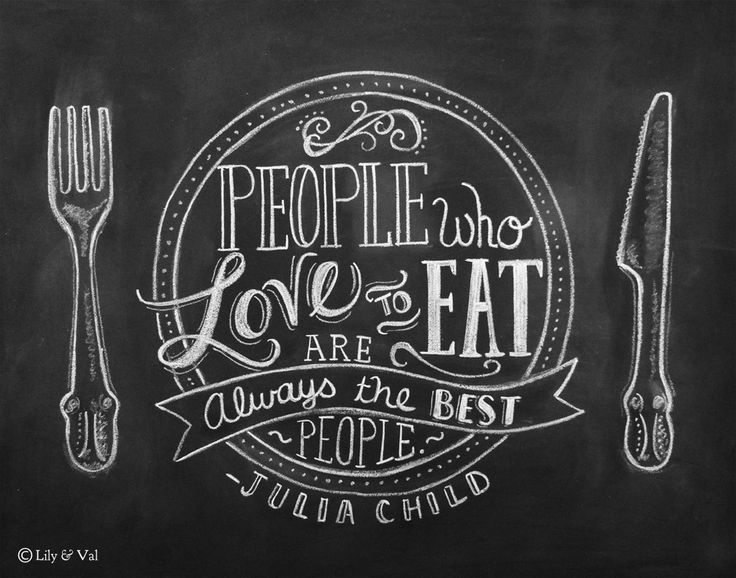 PEOPLE who
Love TO EAT
ARE
always the BEST
~PEOPLE.~
-JULIA CHILD
© Lily & Val